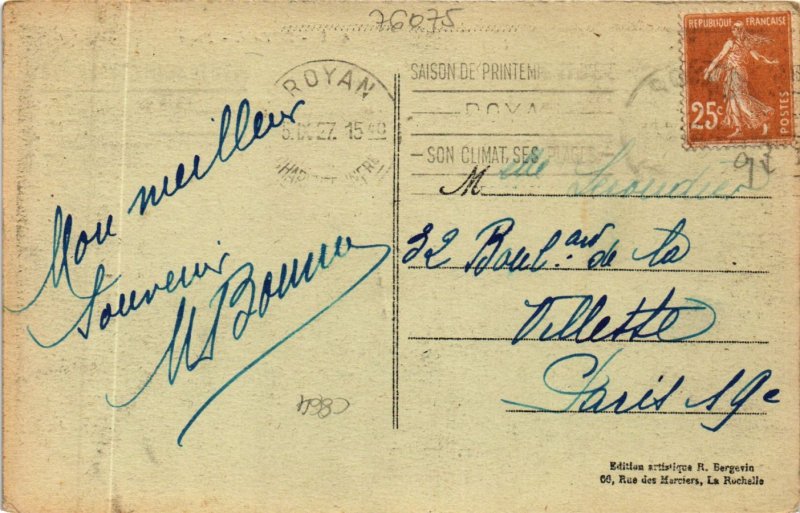 76075
ROYAN
5.IX.27. 15
SAISON DE PRINTEM
ROYA
SON CLIMAT, SES PLAGES
REPUBLIQUE FRANÇAISE
25c
POSTES
Mon meilleur
Souvenir
M
Mlle
32 Boul.ard de la
Villette
Paris 19e
C864
Edition artistique R. Bergevin
66, Rue des Merciers, La Rochelle